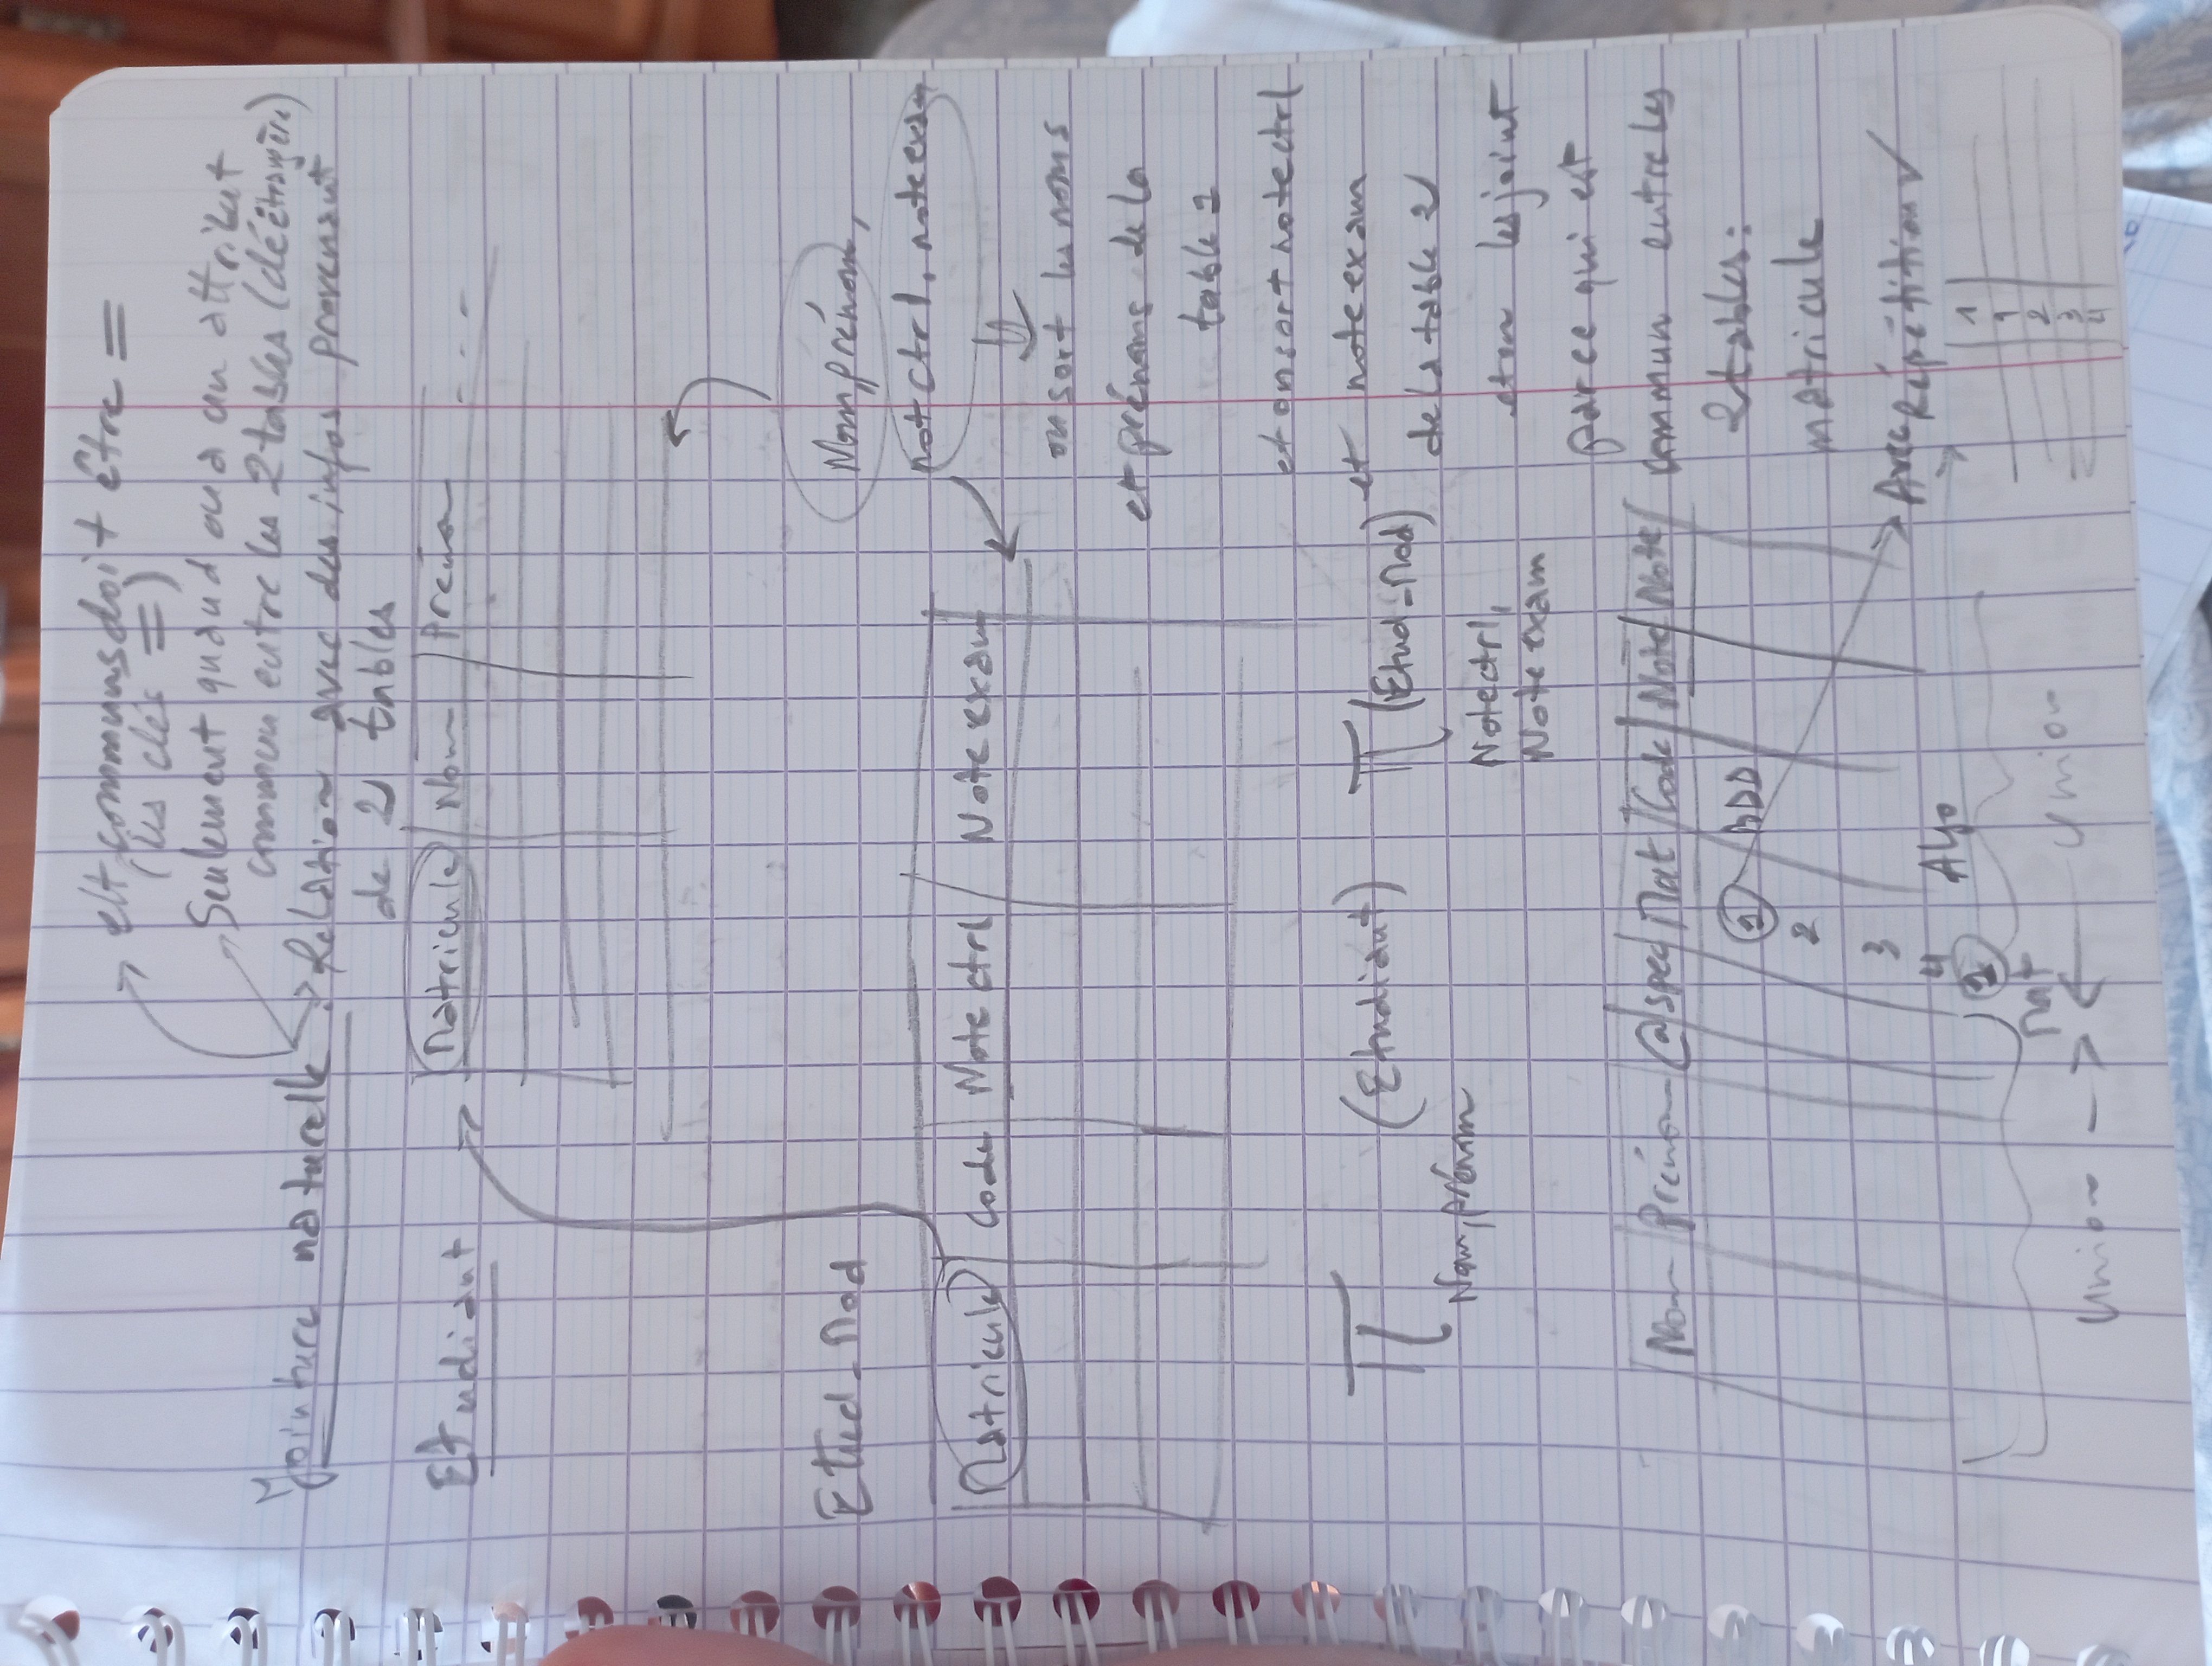 elt communs doit être =
(les clés =)
Seulement quand on a un attribut
commun entre les 2 tables (clé étrangère)
Jointure naturelle : Relation avec des infos provenant
de 2 tables
Etudiant
Matricule Nom Prénom ...
Etud_Mod
Matricule Code Note ctrl Note exam
Nom, prénom,
not ctrl, note exam
on sort les noms
et prénoms de la
table 1
et on sort note ctrl
et note exam
de la table 2
et on les joint
par ce qui est
commun entre les
2 tables :
matricule
π Nom, prénom (Etudiant)
π Note ctrl, Note exam (Etud_Mod)
Nom Prénom @ spec Mat Code Note Note
1 BDD
2
3
4 Algo
1
Avec Répétition ✓
1
1
2
3
4
Mat
Union -> <- Union